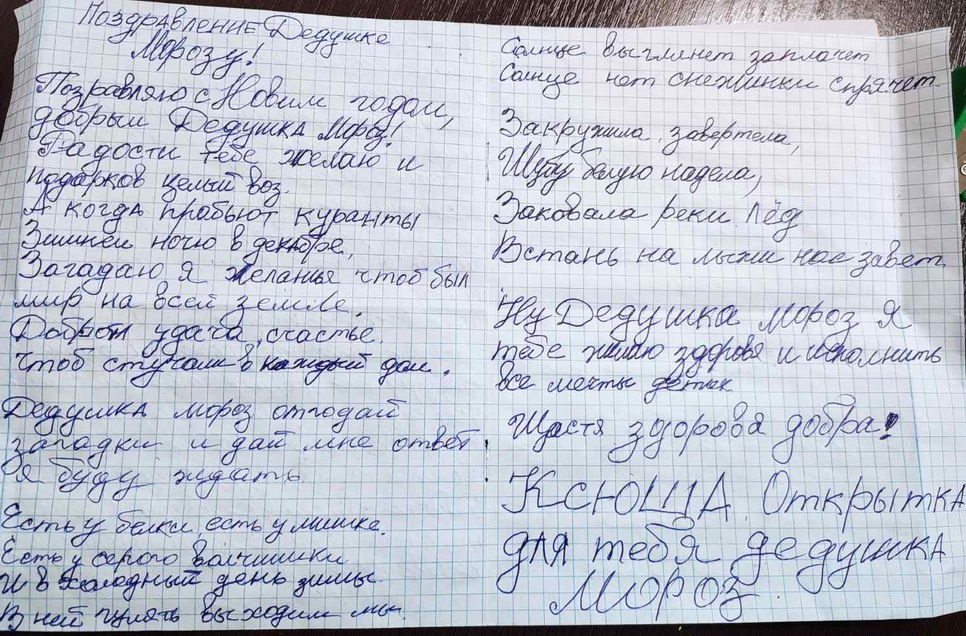 Поздравление Дедушке
Морозу!
Позравляю с Новим годом,
добрый Дедушка Мороз!
Радости тебе желаю и
подарков целый воз.
А когда прабьют куранты
Зимней ночю в декабре,
Загадаю я желанье чтоб был
мир на всей земле.
Доброта удача, счастье.
чтоб стучали в каждый дом.
Дедушка мороз отгодай
загадки и дай мне ответ
я буду ждать
Есть у белки есть у мишке.
Есть у серого волчишки
И в холодный день зимы
В ней гулять выходим мы.
Солнце выглянет заплачет
Солнце нет снежинки спрячет.
Закружила, завертела,
Шубу белую надела,
Заковала реки лёд
Встань на лыжи нас завёт.
Ну Дедушка мороз я
тебе жилаю здоровя и исполнить
все мечты деток
Щастя здоровя добра!
Ксюша Открытка
для тебя дедушка
Мороз.